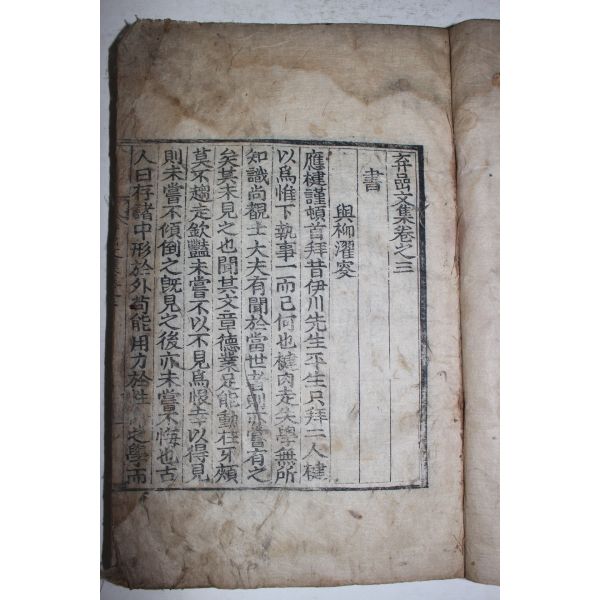 弃嵒文集卷之三
書
與柳濯叟
應楗謹頓首拜昔伊川先生平生只拜二人楗
以爲惟下執事一而已何也楗內走失學無所
知識尚觀士大夫有聞於當世者則亦嘗有之
矣其未見之也聞其文章德業足能動柱牙頰
莫不趨走欽豔未嘗不以不見爲恨幸以得見
則未嘗不傾倒之旣見之後亦未嘗不悔也古
人曰存諸中形於外苟能用力於 之學而